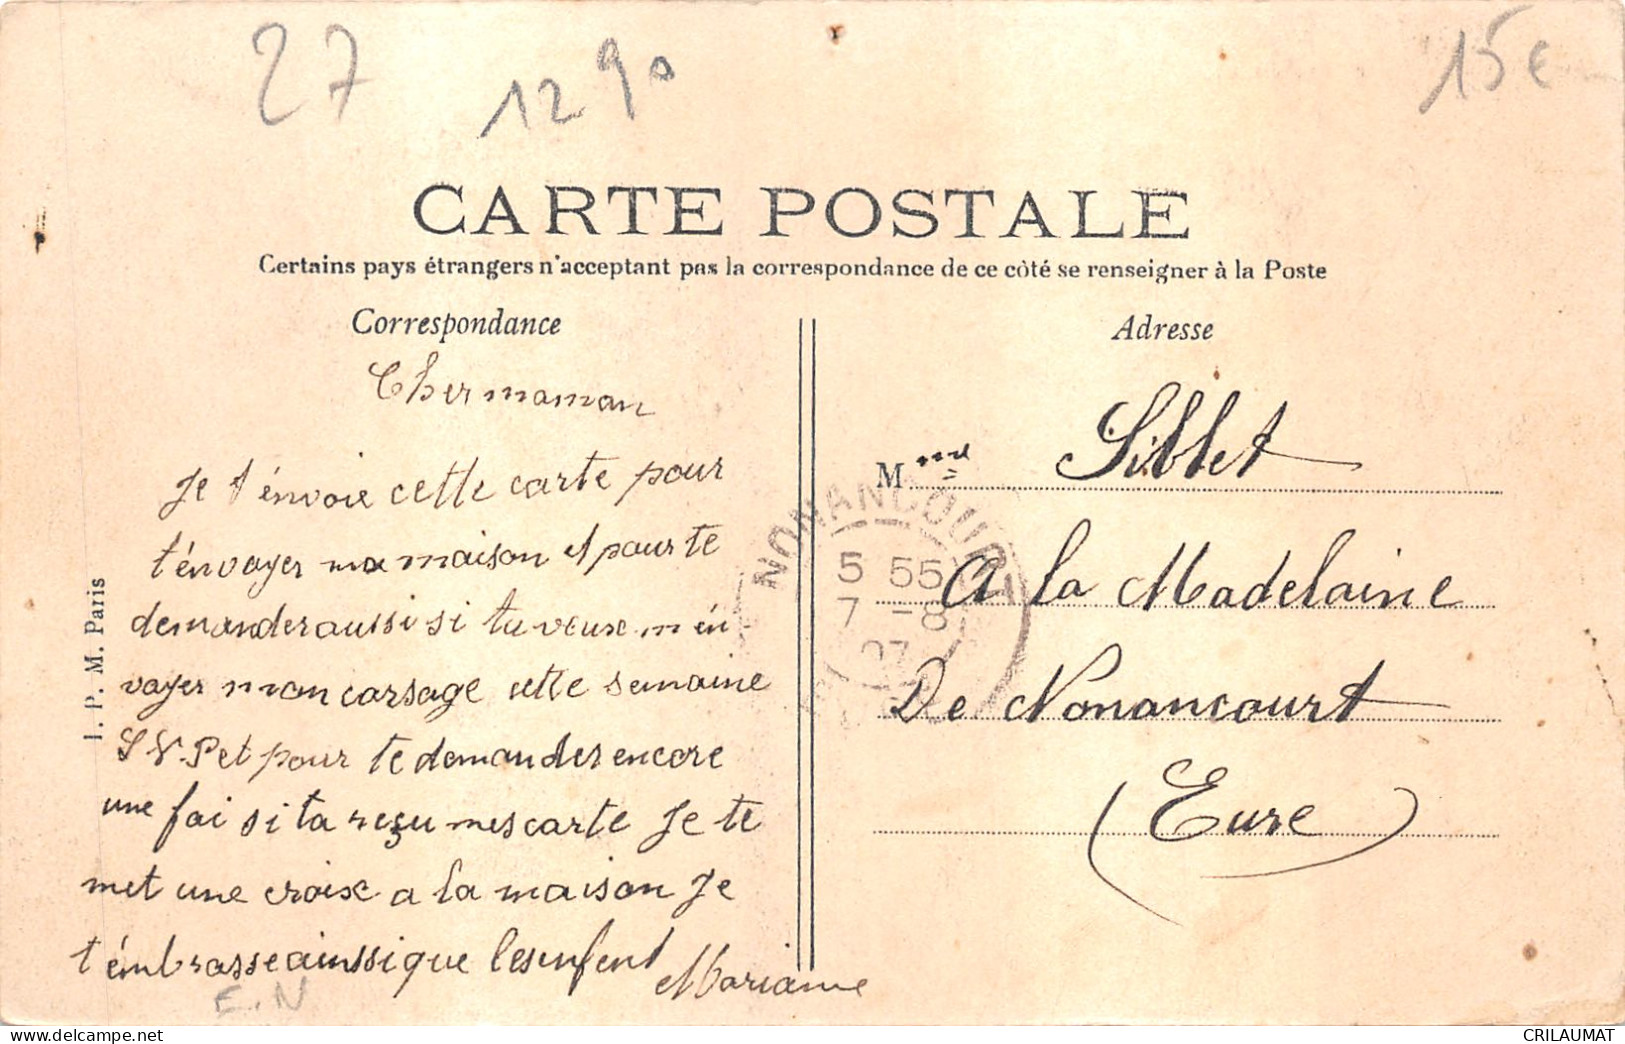 27
1290
15€
CARTE POSTALE
Certains pays étrangers n'acceptant pas la correspondance de ce côté se renseigner à la Poste
Correspondance
Cher maman
Je t'énvoie cette carte pour
t'énvoyer ma maison et pour te
demander aussi si tu veux m'én
voyer mon corsage cette semaine
S V. P et pour te demander encore
une foi si ta reçu mes carte Je te
met une croix a la maison Je
t'émbrasse ainssi que les enfent
Mariane
E.N
I. P. M. Paris
Adresse
Mme Sibbet
A la Madelaine
De Nonancourt
(Eure)
NONANCOURT
5 55
7 - 8
07
CRILAUMAT